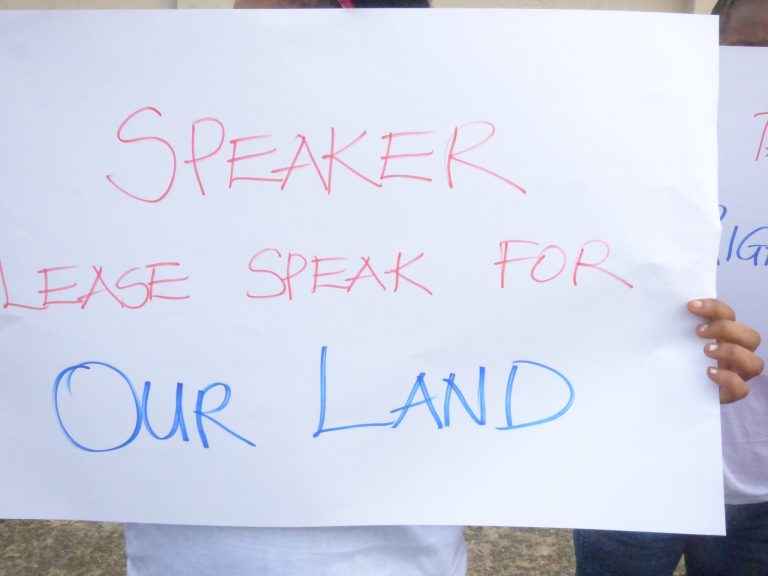 SPEAKER
LEASE SPEAK FOR
OUR LAND